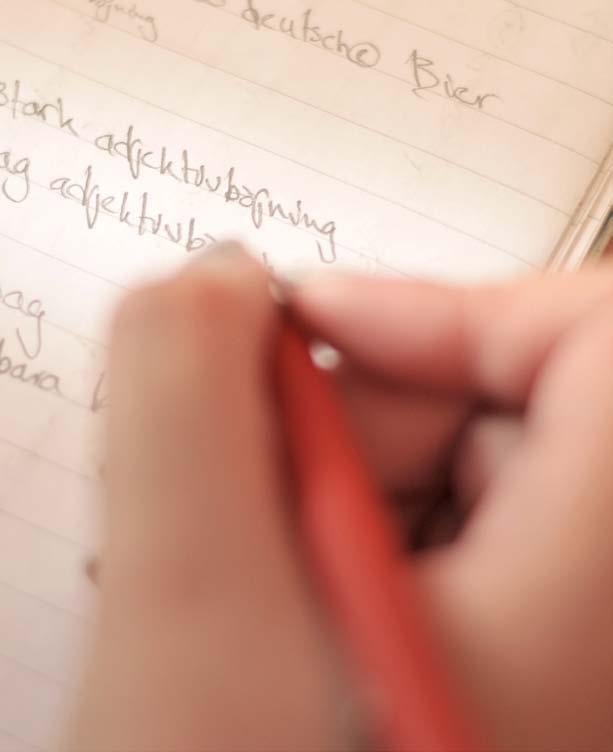 deutsche Bier
Stark adjektivböjning
ag adjektivb
ag
bara